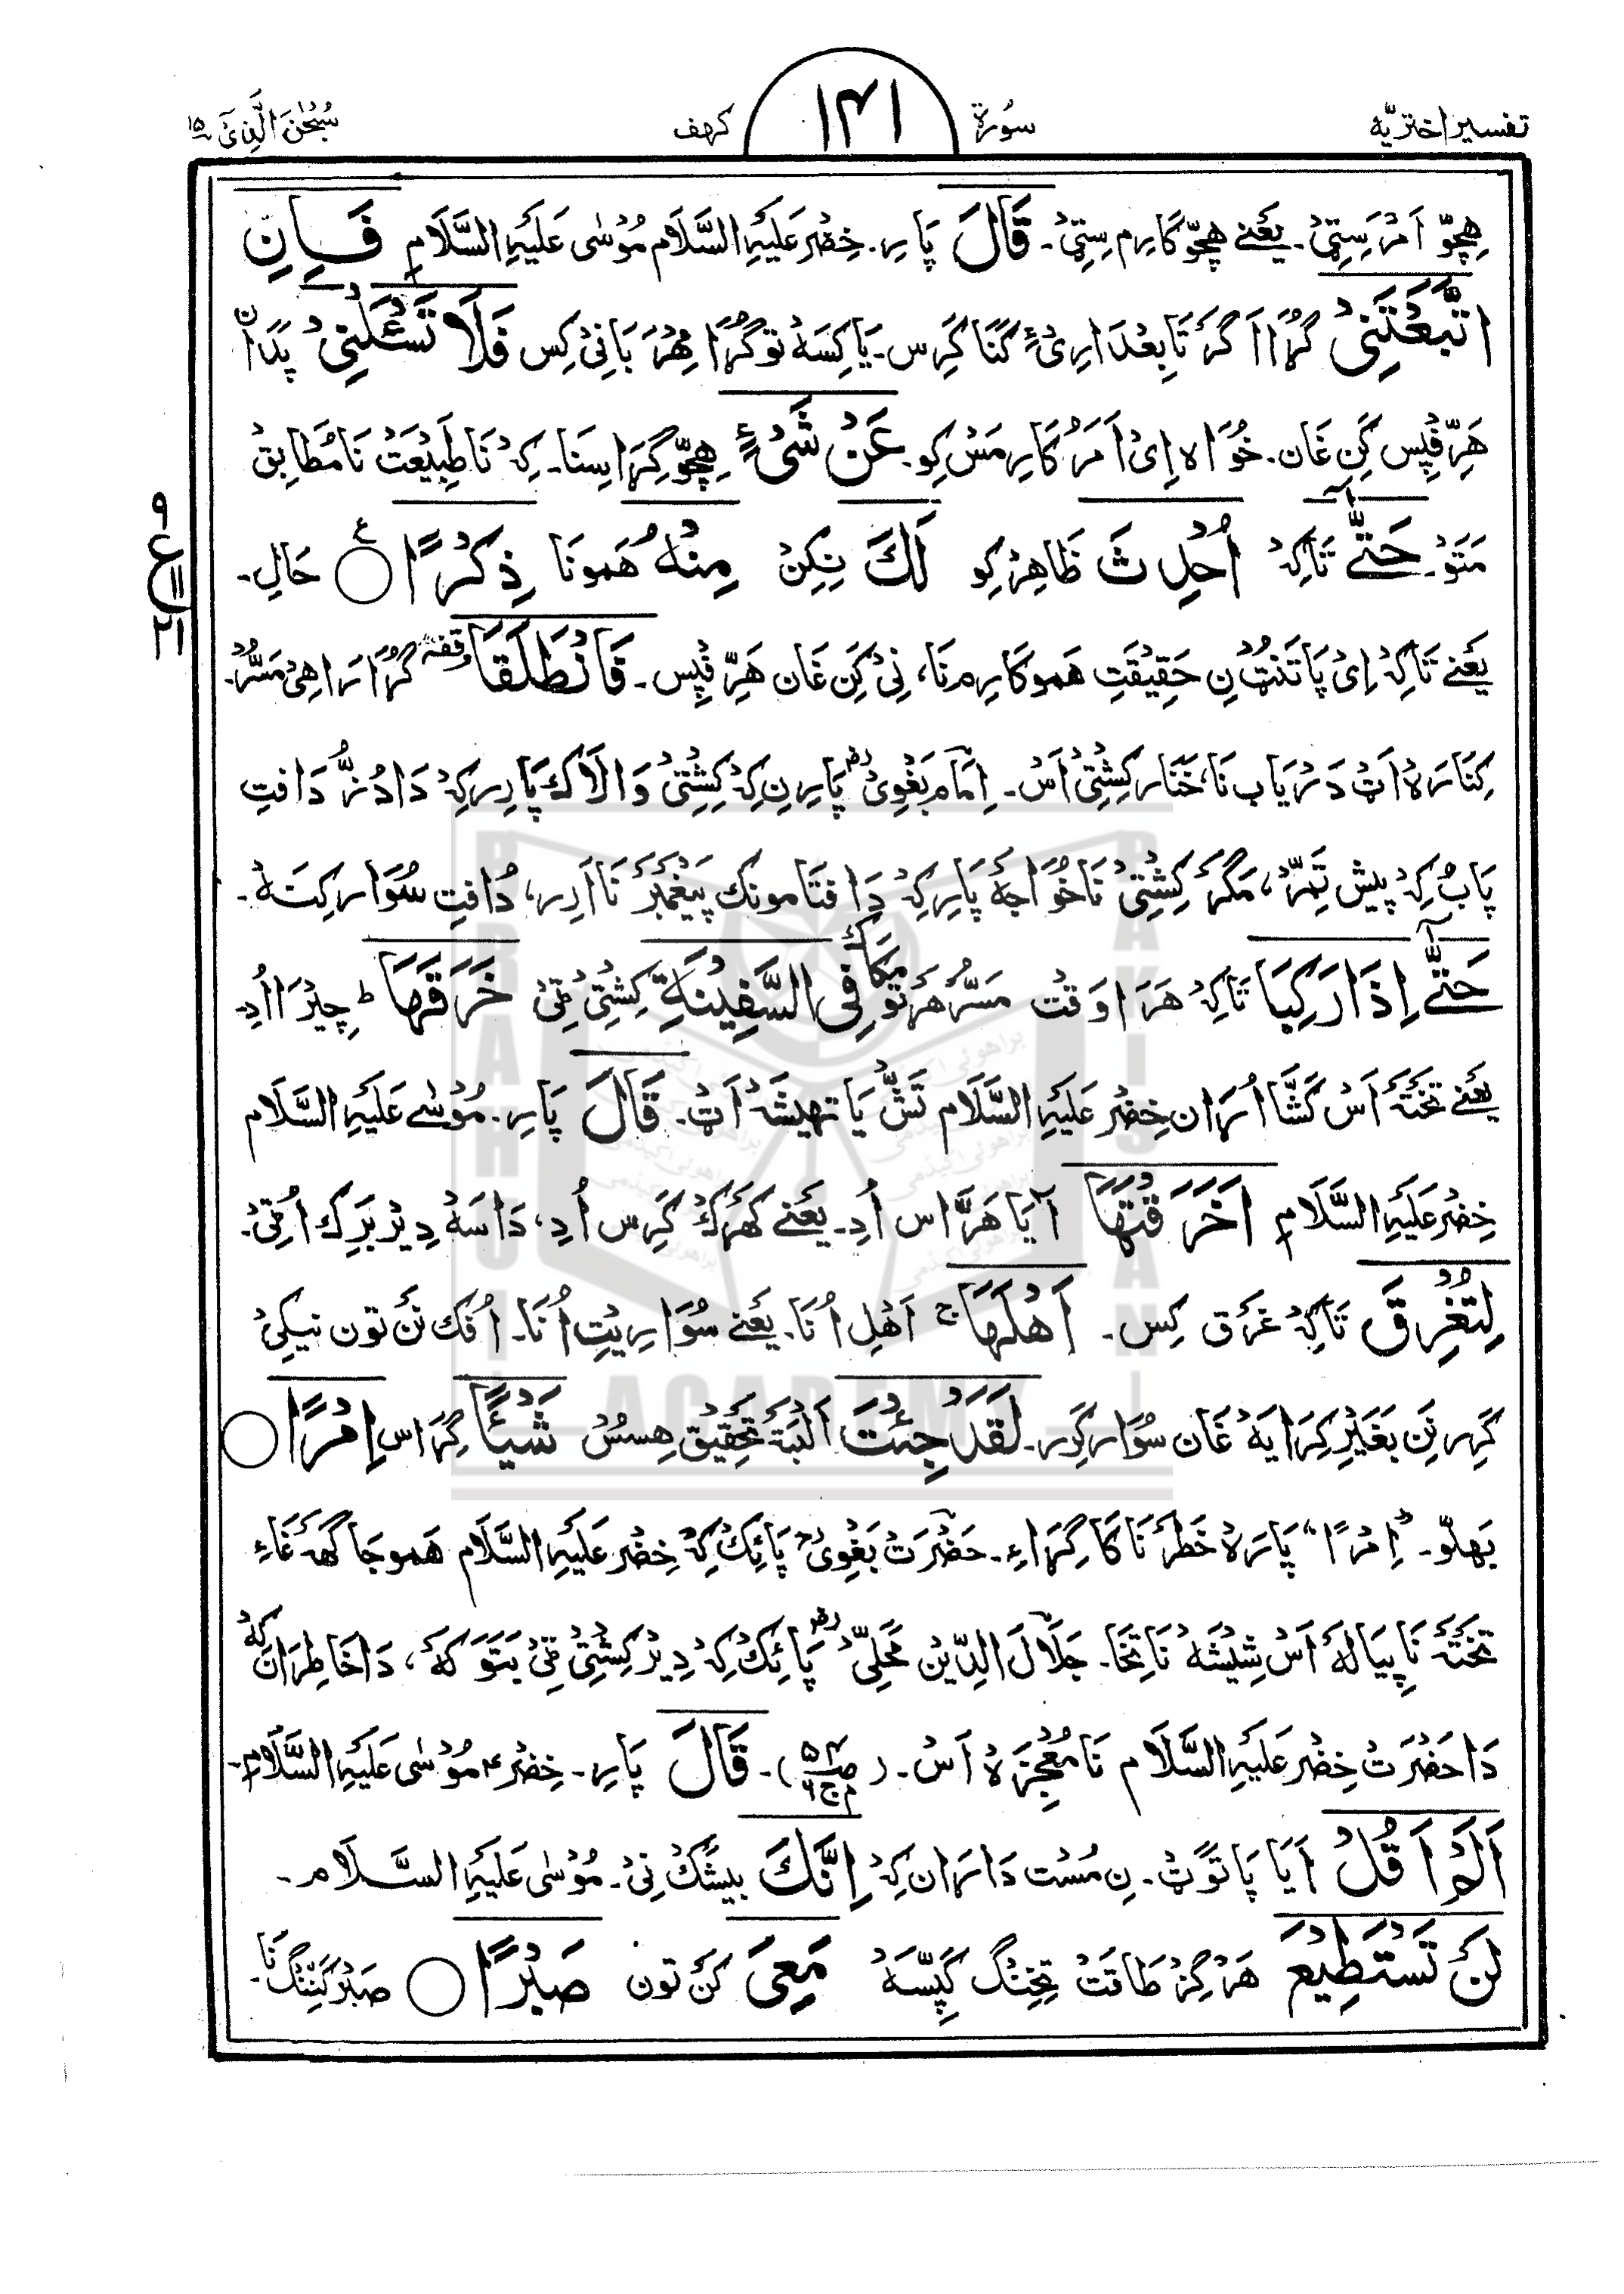 تفسیر اختریّه سُورة ۱۴۱ کہف سُبْحٰنَ الَّذِیْ ۱۵
ھِچّو اَمْرَسِتِیْ۔ یَعْنے ھِچّو کَارِم سِتِیْ۔ قَالَ پَارِ۔ خِضْر عَلَیْہِ السَّلَام مُوْسٰی عَلَیْہِ السَّلَامِ فَـاِنِ
اتَّبَعْتَنِیْ گُڑا اَگَر تَابِعْدَارِیْ ءِ کَنَا کَرِس۔ یَا کِسَہ تو گُڑا مِھْرَبَانِیْ کِس فَلَا تَسْـَٔلْنِیْ پَدَان
ھَرِّفِپِس کَنِ غَان۔ خُوَاہ اِیْ اَمَرْ کَارِمَسْ کو۔ عَنْ شَیْءٍ ھِچّو گِرَا سِنَا۔ کِہ نَا طَبِیْعَتْ نَا مُطَابِقْ
مَتَوْ۔ حَتّٰٓی تَاکِہ اُحْدِثَ ظَاھِرْ کو لَکَ نِکِنْ مِنْہُ ھَمونَا ذِکْرًا ○ حَالِ۔
۹ ع ۱۱ ۲۱
یَعْنے تَاکِہ اِیْ پَاتَنْتْ نِ حَقِیْقَتِ ھَمو کَارِم نَا، نِیْ کَنِ غَان ھَرِّفِپِس۔ فَانْطَلَقَا وقفۃ گُڑا رَاھِیْ مَسُّرْ۔
کِنَارَہ اَٹْ دَرْیَاب نَا، خَنَار کِشْتِیْ اَسْ۔ اِمَام بَغْوِیْ ؒ پَارِنِ کِہ کِشْتِیْ وَالَاک پَارِر کِہ دَا دُزَّ دَافتِ
پَابُ کِہ پیش تَمِرْ، مَگَر کِشْتِیْ نَا خُوَاجَہ پَارِ کِہ دَافتَا مونک پَیْغَمْبَرْ نَا اَدِر، دُافتِ سُوَار کِتَہ۔
حَتّٰٓی اِذَا رَکِبَا تَاکِہ ھَرَا وَقْت مَسُّر ھَرْتو مَکَاک فِی السَّفِیْنَۃِ کِشْتِیْ ٹِیْ خَرَقَھَا ط چِیْرَا اُدِ
یَعْنے تَخْتَہ اَسْ کَشَّا اُرَان خِضْر عَلَیْہِ السَّلَام تَشْ یَا تھیشَہ اَٹْ۔ قَالَ پَارِ۔ مُوْسٰے عَلَیْہِ السَّلَام
خِضْر عَلَیْہِ السَّلَامِ اَخَرَقْتَھَا آیَا ھَرَّاس اُدِ۔ یَعْنے کَھَڑکْ کَرِس اُدِ، دَاسَہ دِیْر بَرِک اُٹِیْ۔
لِتُغْرِقَ تَاکِہ غَرَق کِس۔ اَھْلَھَا ج اَھْلِ اُنَا۔ یَعْنے سُوَارِیْتِ اُنَا۔ اُفک نَن تون نیکِیْ
کَرِر نَنِ بَغَیْرِ کِرَایَہ غَان سُوَار کَرِر۔ لَقَدْ جِئْتَ اَلْبَتَّہ تَحْقِیْق ھِسُسْ شَیْـًٔا گِرَاس اِمْرًا ○
بَھلّو۔ "اِمْرًا" پَارَہ خَطَرنَاکَا گِرَاءِ۔ حَضْرَتْ بَغْوِیْ ؒ پَائِکْ کِہ خِضْر عَلَیْہِ السَّلَام ھَمو جَاگَہ غَاءِ
تَخْتَہ نَا پِیَالَہ اَسْ شِیْشَہ نَا تِخَا۔ جَلَالَ الدِّیْن مَحَلِّیْ ؒ پَائِکْ کِہ دِیْر کِشْتِیْ ٹِیْ بَتَوَکہ، دَا خَاطِرَانْ کِہ
دَا حَضْرَتْ خِضْر عَلَیْہِ السَّلَام نَا مُعْجِزَہ اَسْ۔ قَالَ پَارِ۔ خِضْر ؑ مُوْسٰی عَلَیْہِ السَّلَام۔
اَلَمْ اَقُلْ اَیَا پَاتَوٹْ۔ نِ مُسْت دَارَان کِہ اِنَّکَ بیشَکْ نِیْ۔ مُوْسٰی عَلَیْہِ السَّلَام۔
لَنْ تَسْتَطِیْعَ ھَرْ گِزْ طَاقَتْ تِخِنْگ کَپِّسَہ مَعِیَ کَنْ تون صَبْرًا ○ صَبْر کَنِنْگ نَا۔
BRAHUI ACADEMY PAKISTAN
براہوئی اکیڈمی